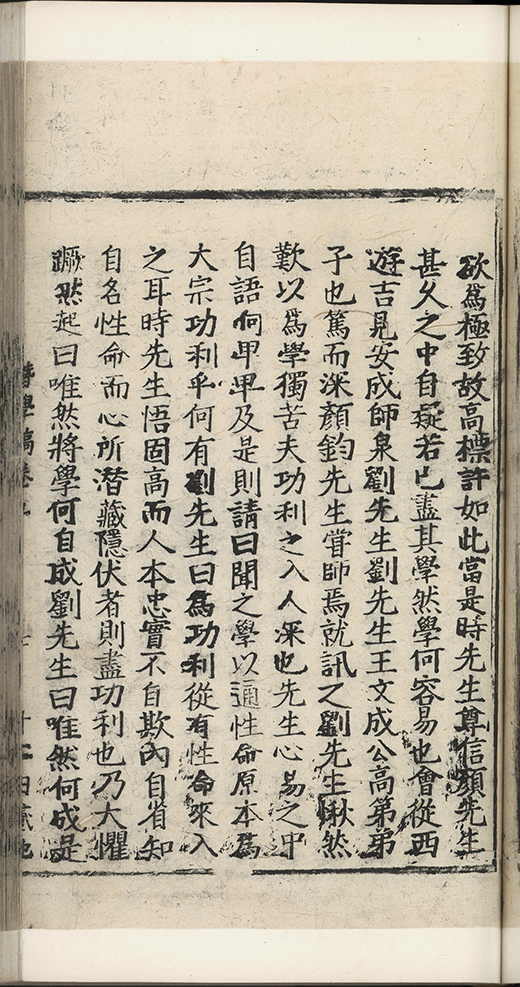 欲爲極致故高標許如此當是時先生尊信顔先生
甚乆之中自疑若已盡其學然學何容易也會從西
遊吉見安成師泉劉先生劉先生王文成公高第弟
子也篤而深顔鈞先生嘗師焉就訊之劉先生愀然
歎以爲學獨苦夫功利之入人深也先生心易之中
自語何甲甲及是則請曰聞之學以通性命原本爲
大宗功利乎何有劉先生曰爲功利從有性命來入
之耳時先生悟固高而人本忠實不自欺內自省知
自名性命而心所潜藏隱伏者則盡功利也乃大懼
蹶然起曰唯然將學何自成劉先生曰唯然何成是
學稿卷